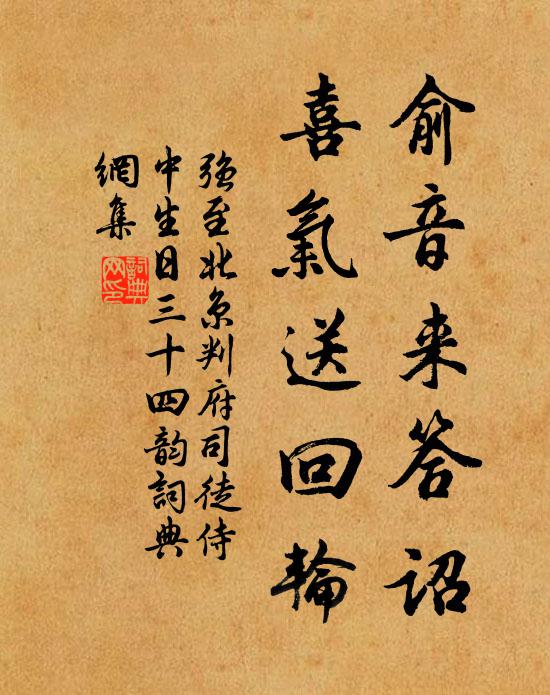 俞音来答詔
喜氣送回輪
强至北京判府司徒侍
中生日三十四韵詞典
網集
詞典网印